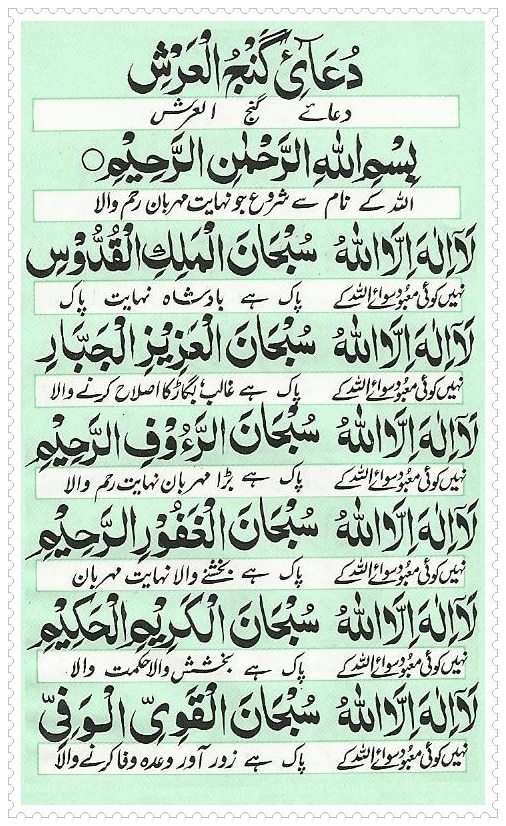 دُعَآئِ گَنْجُ الْعَرْشِ
دعائے گنج العرش
بِسْمِ اللهِ الرَّحْمٰنِ الرَّحِيْمِ ○
اللہ کے نام سے شروع جو نہایت مہربان رحم والا
لَآ اِلٰهَ اِلَّا اللهُ سُبْحَانَ الْمَلِكِ الْقُدُّوْسِ
نہیں کوئی معبود سوائے اللہ کے پاک ہے بادشاہ نہایت پاک
لَآ اِلٰهَ اِلَّا اللهُ سُبْحَانَ الْعَزِيْزِ الْجَبَّارِ
نہیں کوئی معبود سوائے اللہ کے پاک ہے غالب بگاڑ کا اصلاح کرنے والا
لَآ اِلٰهَ اِلَّا اللهُ سُبْحَانَ الرَّءُوْفِ الرَّحِيْمِ
نہیں کوئی معبود سوائے اللہ کے پاک ہے بڑا مہربان نہایت رحم والا
لَآ اِلٰهَ اِلَّا اللهُ سُبْحَانَ الْغَفُوْرِ الرَّحِيْمِ
نہیں کوئی معبود سوائے اللہ کے پاک ہے بخشنے والا نہایت مہربان
لَآ اِلٰهَ اِلَّا اللهُ سُبْحَانَ الْكَرِيْمِ الْحَكِيْمِ
نہیں کوئی معبود سوائے اللہ کے پاک ہے بخشش والا حکمت والا
لَآ اِلٰهَ اِلَّا اللهُ سُبْحَانَ الْقَوِيِّ الْوَفِيِّ
نہیں کوئی معبود سوائے اللہ کے پاک ہے زور آور وعدہ وفا کرنے والا